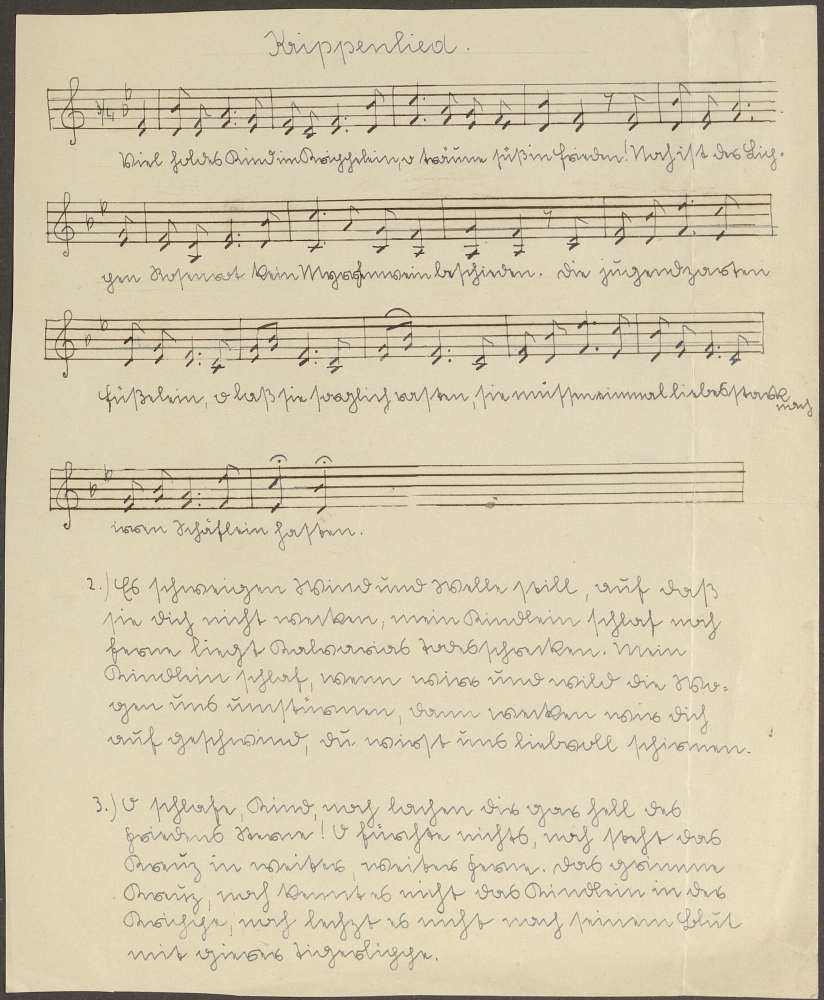 Krippenlied.
3/4
Viel holdes Kind im Krippelein, o träume süß in Frieden! Noch ist des Lip-
pen Rosenrot kein Myrrhenwein beschieden. Die jugendzarten
Füßelein, o laß sie sorglich rasten, sie müssen einmal liebesstark nach
irren Schäflein hasten.
2.) Es schweigen Wind und Welle still, auf daß
sie dich nicht wecken, mein Kindlein schlaf noch
ferne liegt Kalvarias Todesschrecken. Mein
Kindlein schlaf, wenn wirr und wild die Wo-
gen uns umstürmen, dann wecken wir dich
auf geschwind, du wirst uns liebvoll schirmen.
3.) O schlafe, Kind, noch lachen dir gar hell des
Friedens Sterne! O fürchte nichts, noch steht das
Kreuz in weiter, weiter Ferne. Das grimme
Kreuz, noch kennt es nicht das Kindlein in der
Krippe, noch lechzt es nicht nach seinem Blut
mit gierer Tigerlippe.